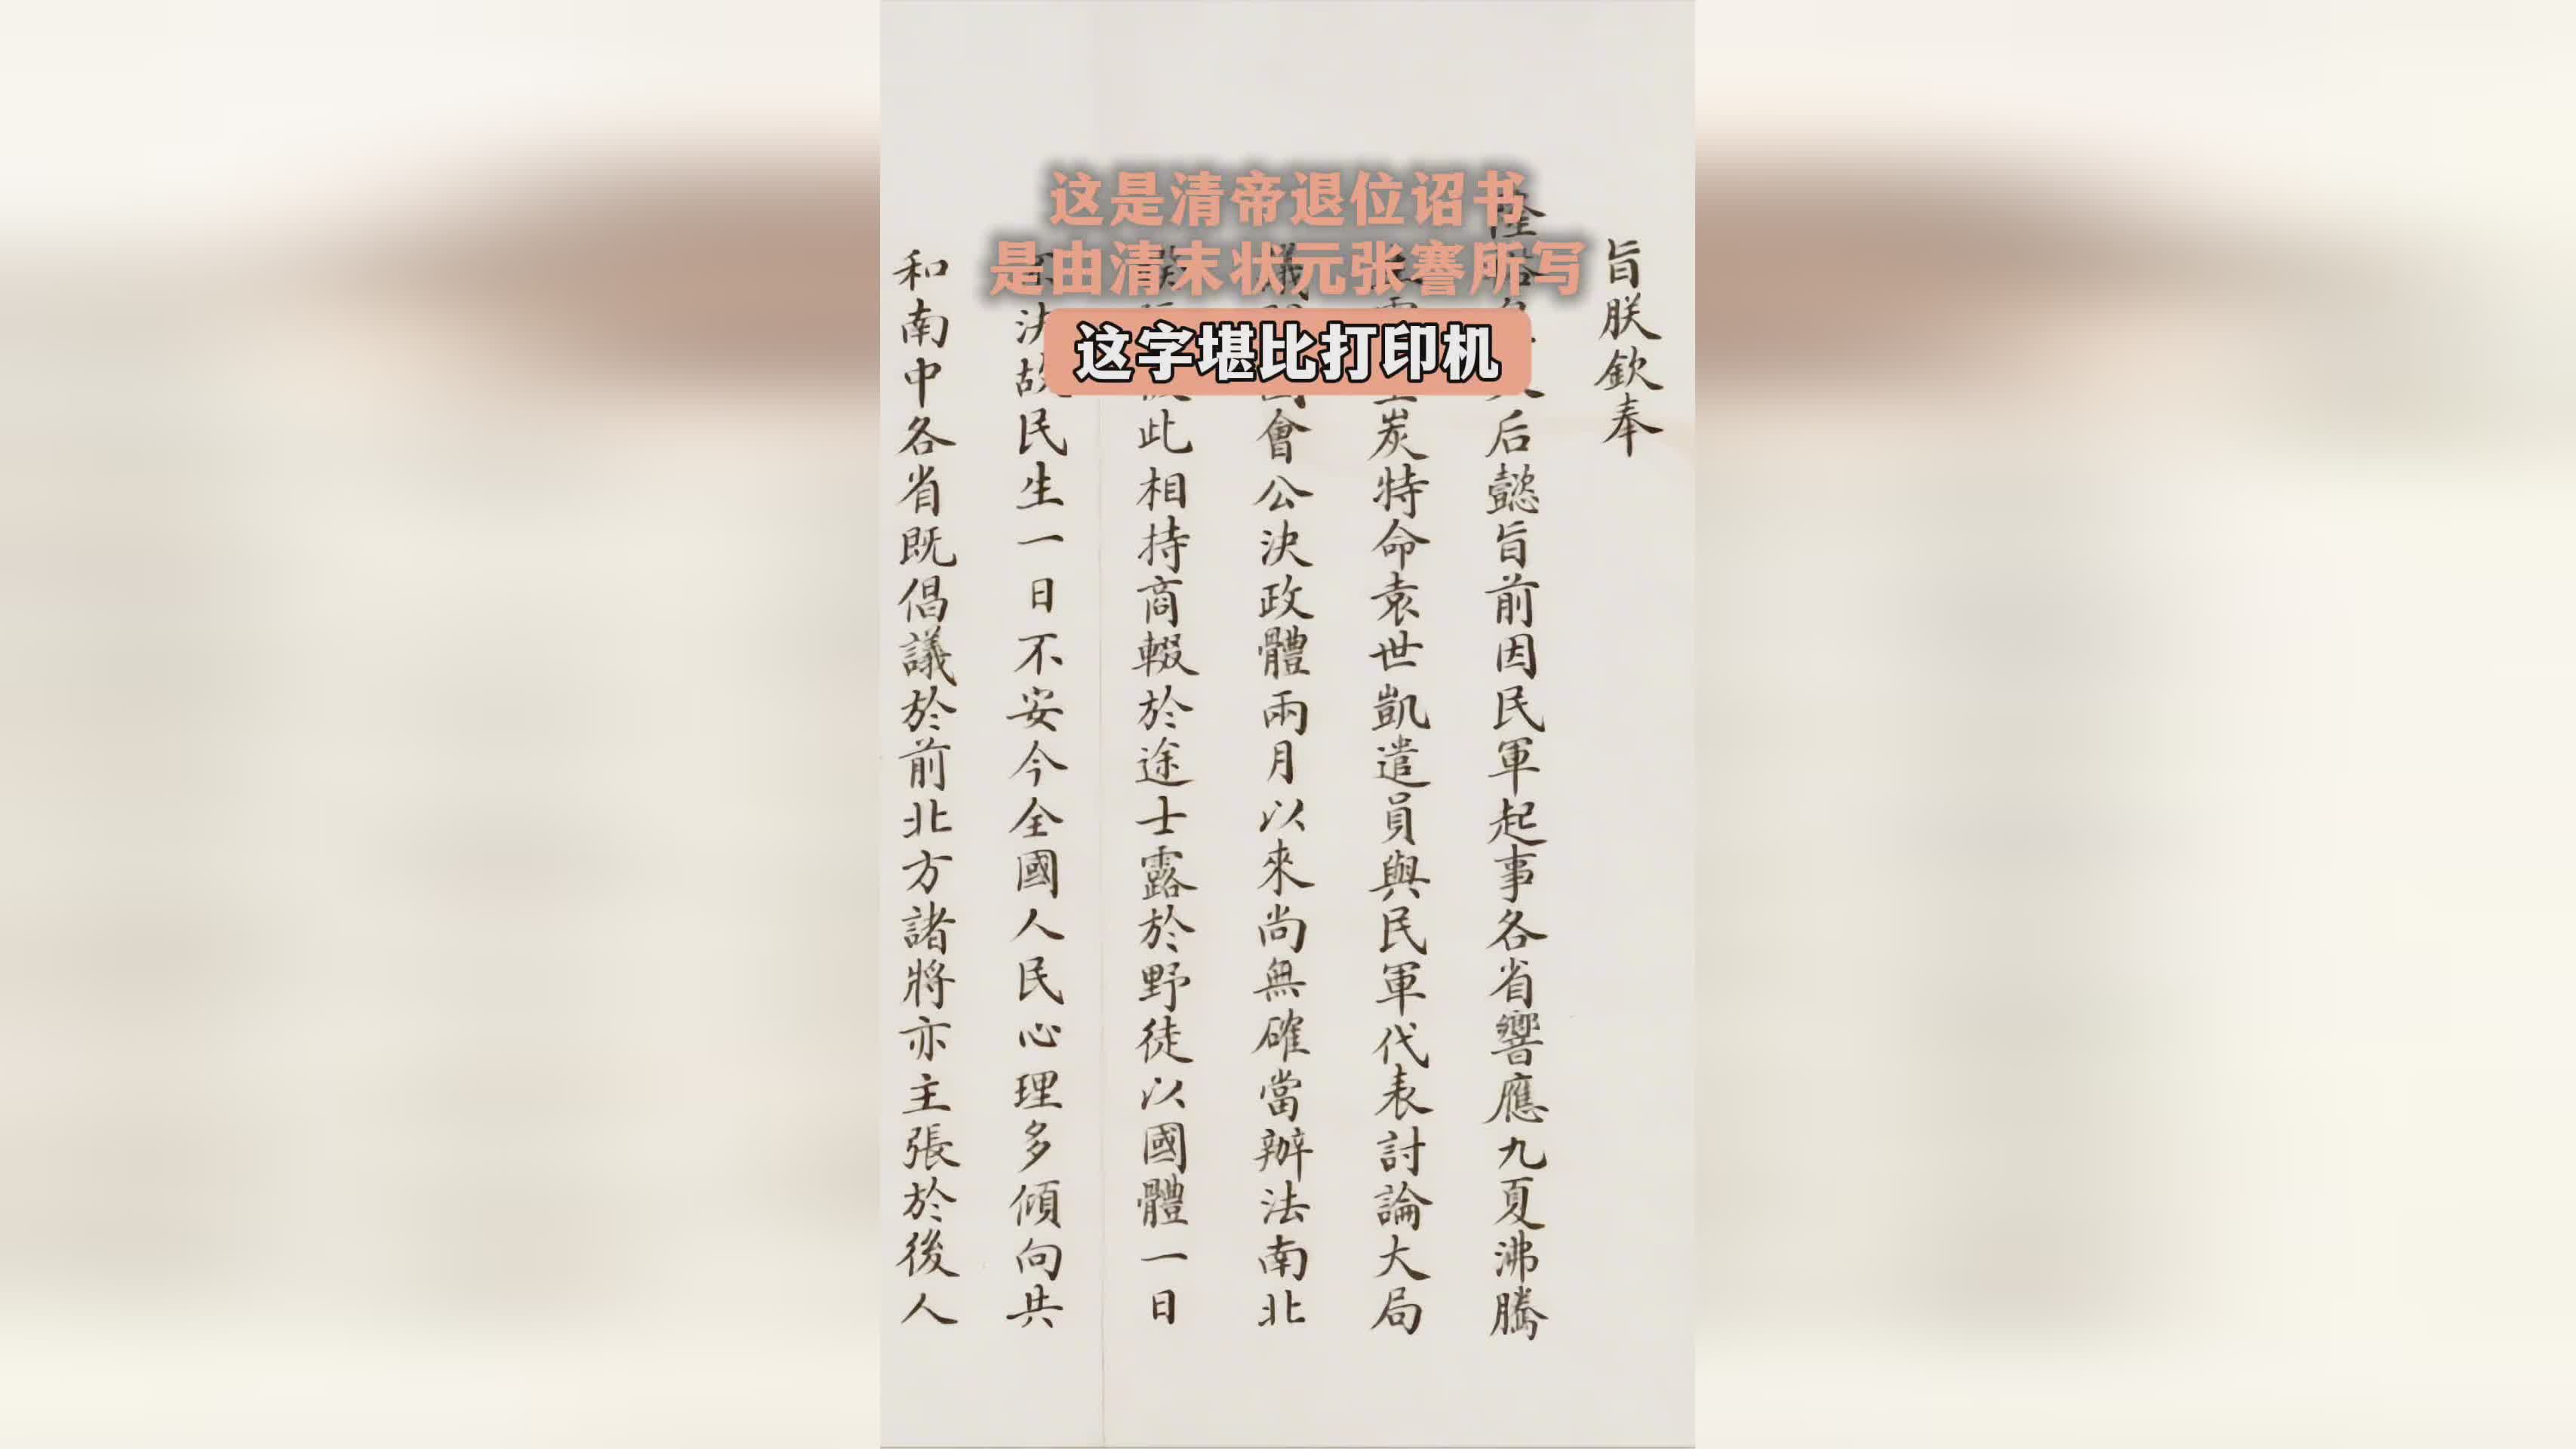 这是清帝退位诏书
是由清末状元张謇所写
这字堪比打印机
旨朕欽奉
后懿旨前因民軍起事各省響應九夏沸騰
炭特命袁世凱遣員與民軍代表討論大局
會公決政體兩月以來尚無確當辦法南北
此相持商輟於途士露於野徒以國體一日
決故民生一日不安今全國人民心理多傾向共
和南中各省既倡議於前北方諸將亦主張於後人